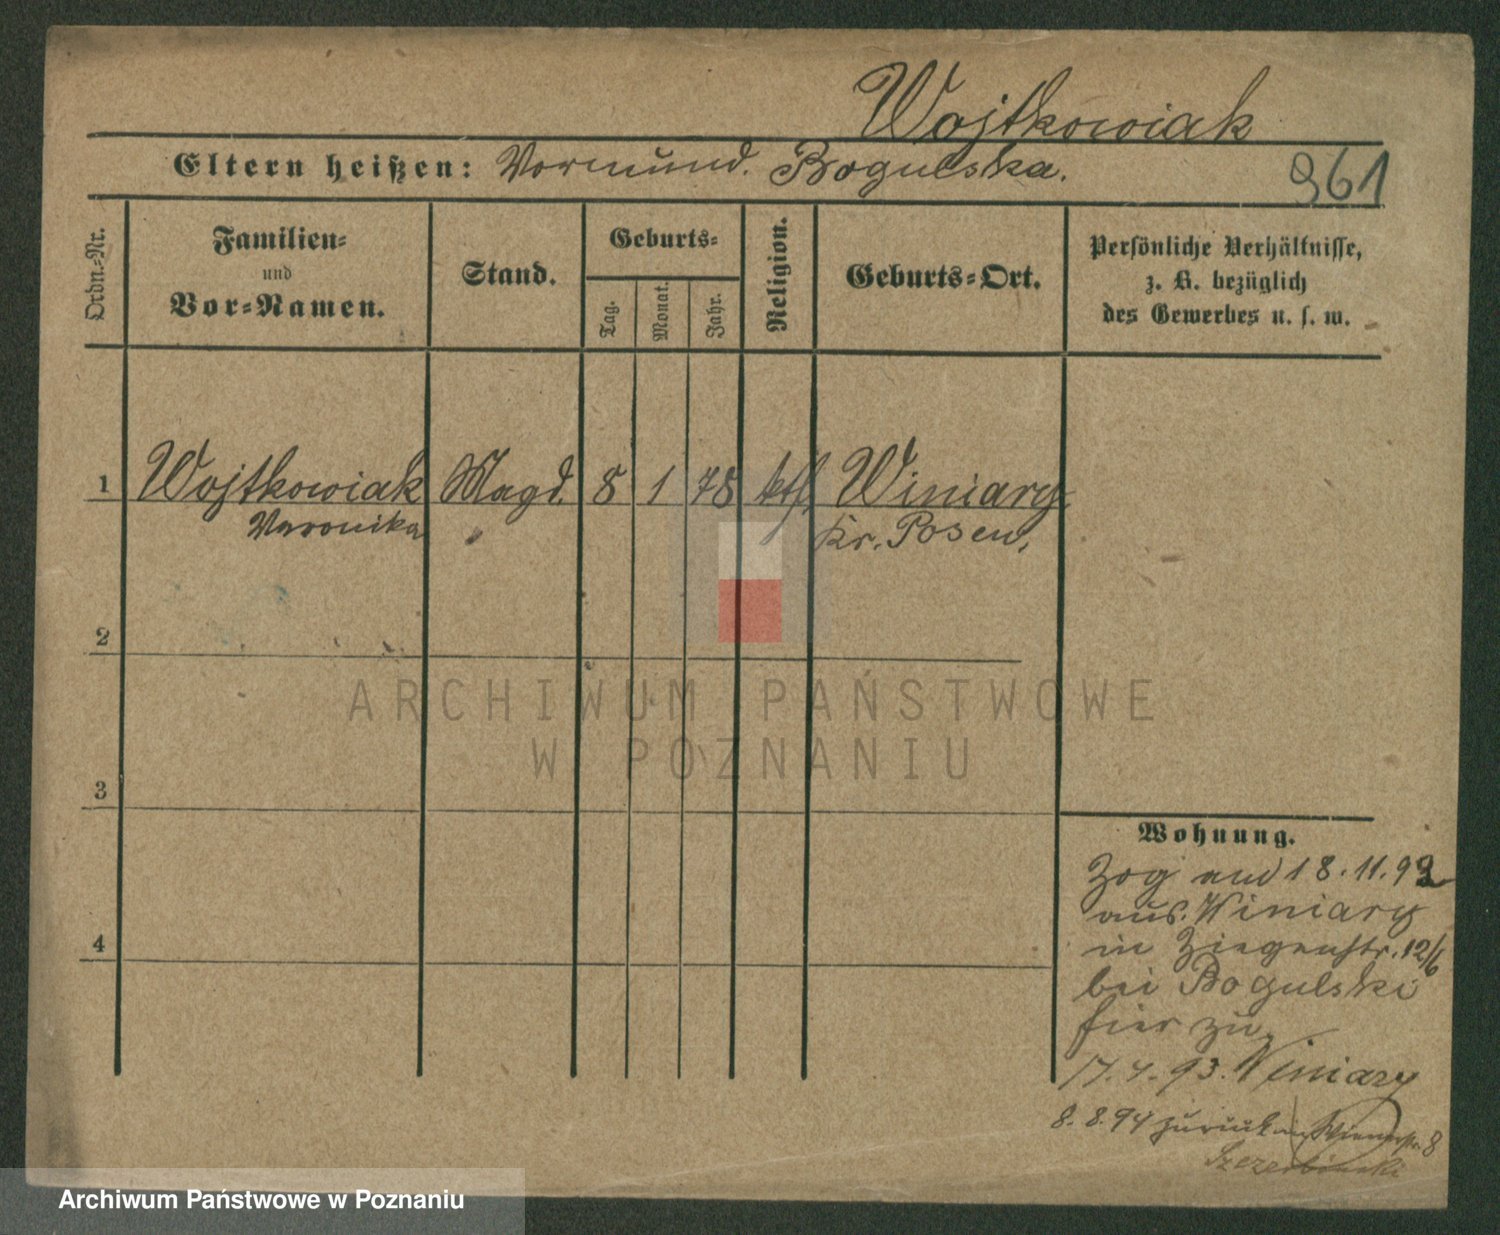 Wojtkowiak
Eltern heißen: Vormund. Bogulska.
961
Ordn.-Nr.
Familien-
und
Vor-Namen.
Stand.
Geburts-
Tag.
Monat.
Jahr.
Religion.
Geburts-Ort.
Persönliche Verhältnisse,
z. B. bezüglich
des Gewerbes u. s. w.
1 Wojtkowiak Magd. 8 1 78 ktl. Winiary
Veronika Kr. Posen,
2
3
4
ARCHIWUM PAŃSTWOWE
W POZNANIU
Wohnung.
Zog am 18.11.92
aus. Winiary
in Ziegenstr. 12/6
bei Bogulski
hier zu.
17.4.93. Winiary
8.8.94 zurück Wienerstr. 8
Szczerbinski
Archiwum Państwowe w Poznaniu